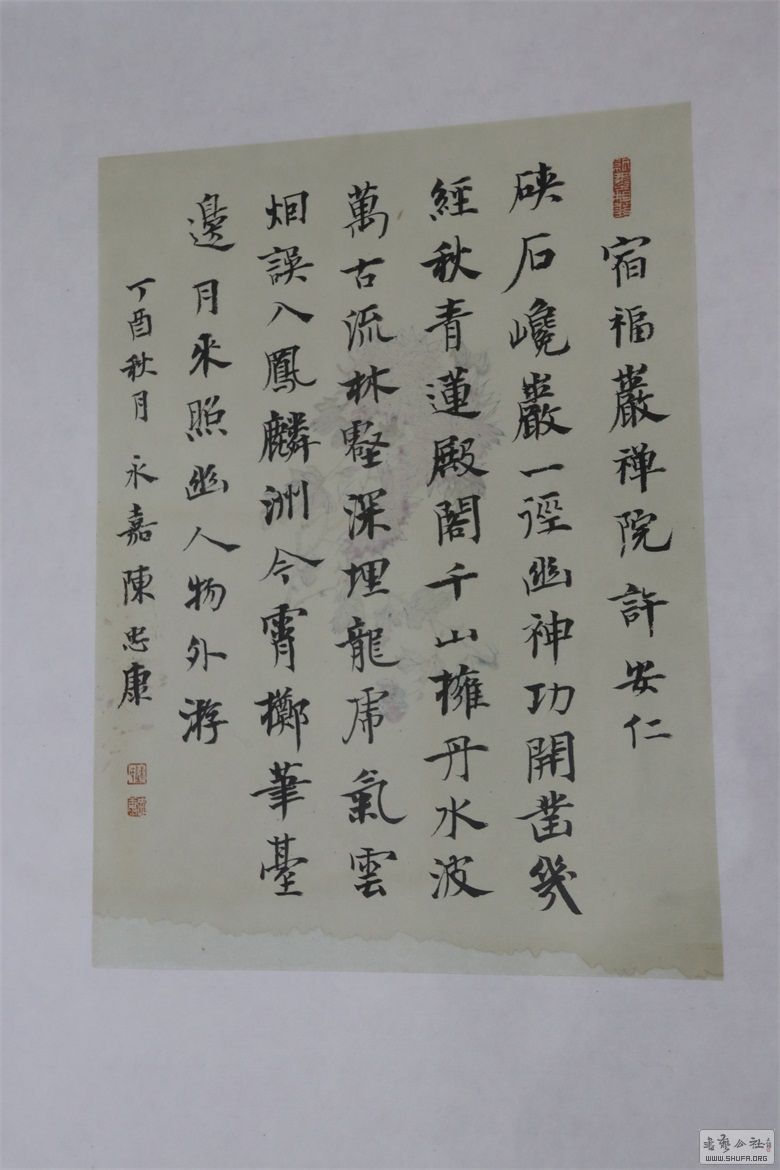 宿福巖禅院許安仁
硤石巉巖一逕幽神功開凿幾
經秋青蓮殿閣千山擁丹水波
萬古流林壑深埋龍虎氣雲
烟誤入鳳麟洲今宵擲筆臺
邊月來照幽人物外游
丁酉秋月永嘉陳忠康
書藝公社
WWW.SHUFA.ORG